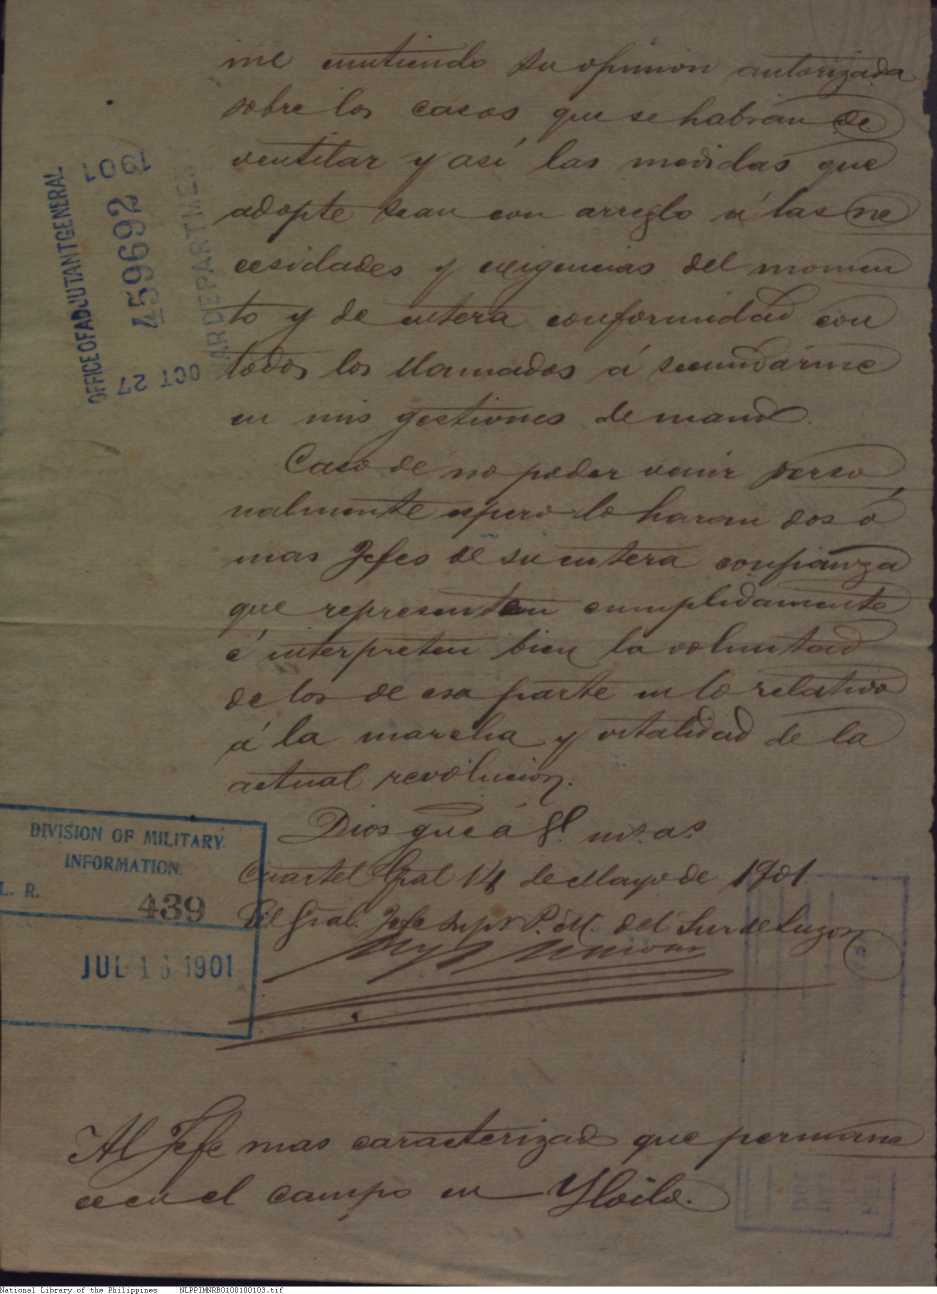 me emitiendo su opinion autorizada
sobre los casos que se habrán de
ventilar y así las medidas que
adopte sean con arreglo á las ne
cesidades y exigencias del momen
to y de entera conformidad con
todos los llamados á secundarme
en mis gestiones de mando.
Caso de no poder venir perso
nalmente espero lo haran dos ó
mas Jefes de su entera confianza
que representen cumplidamente
é interpreten bien la voluntad
de los de esa parte en lo relativo
á la marcha y vitalidad de la
actual revolucion.
Dios gue á V. m.s a.s
Cuartel Gral 14 de Mayo de 1901
El Gral. Jefe Sup.r P. M. del Sur de Luzon
Al Jefe mas caracterizado que permane
ce en el campo en Yloilo.
OFFICE OF ADJUTANT GENERAL
459692
1901
WAR DEPARTMENT
OCT 27
DIVISION OF MILITARY
INFORMATION.
L. R.
439
JUL 16 1901
National Library of the Philippines NLPPIMNRB0100100103.tif